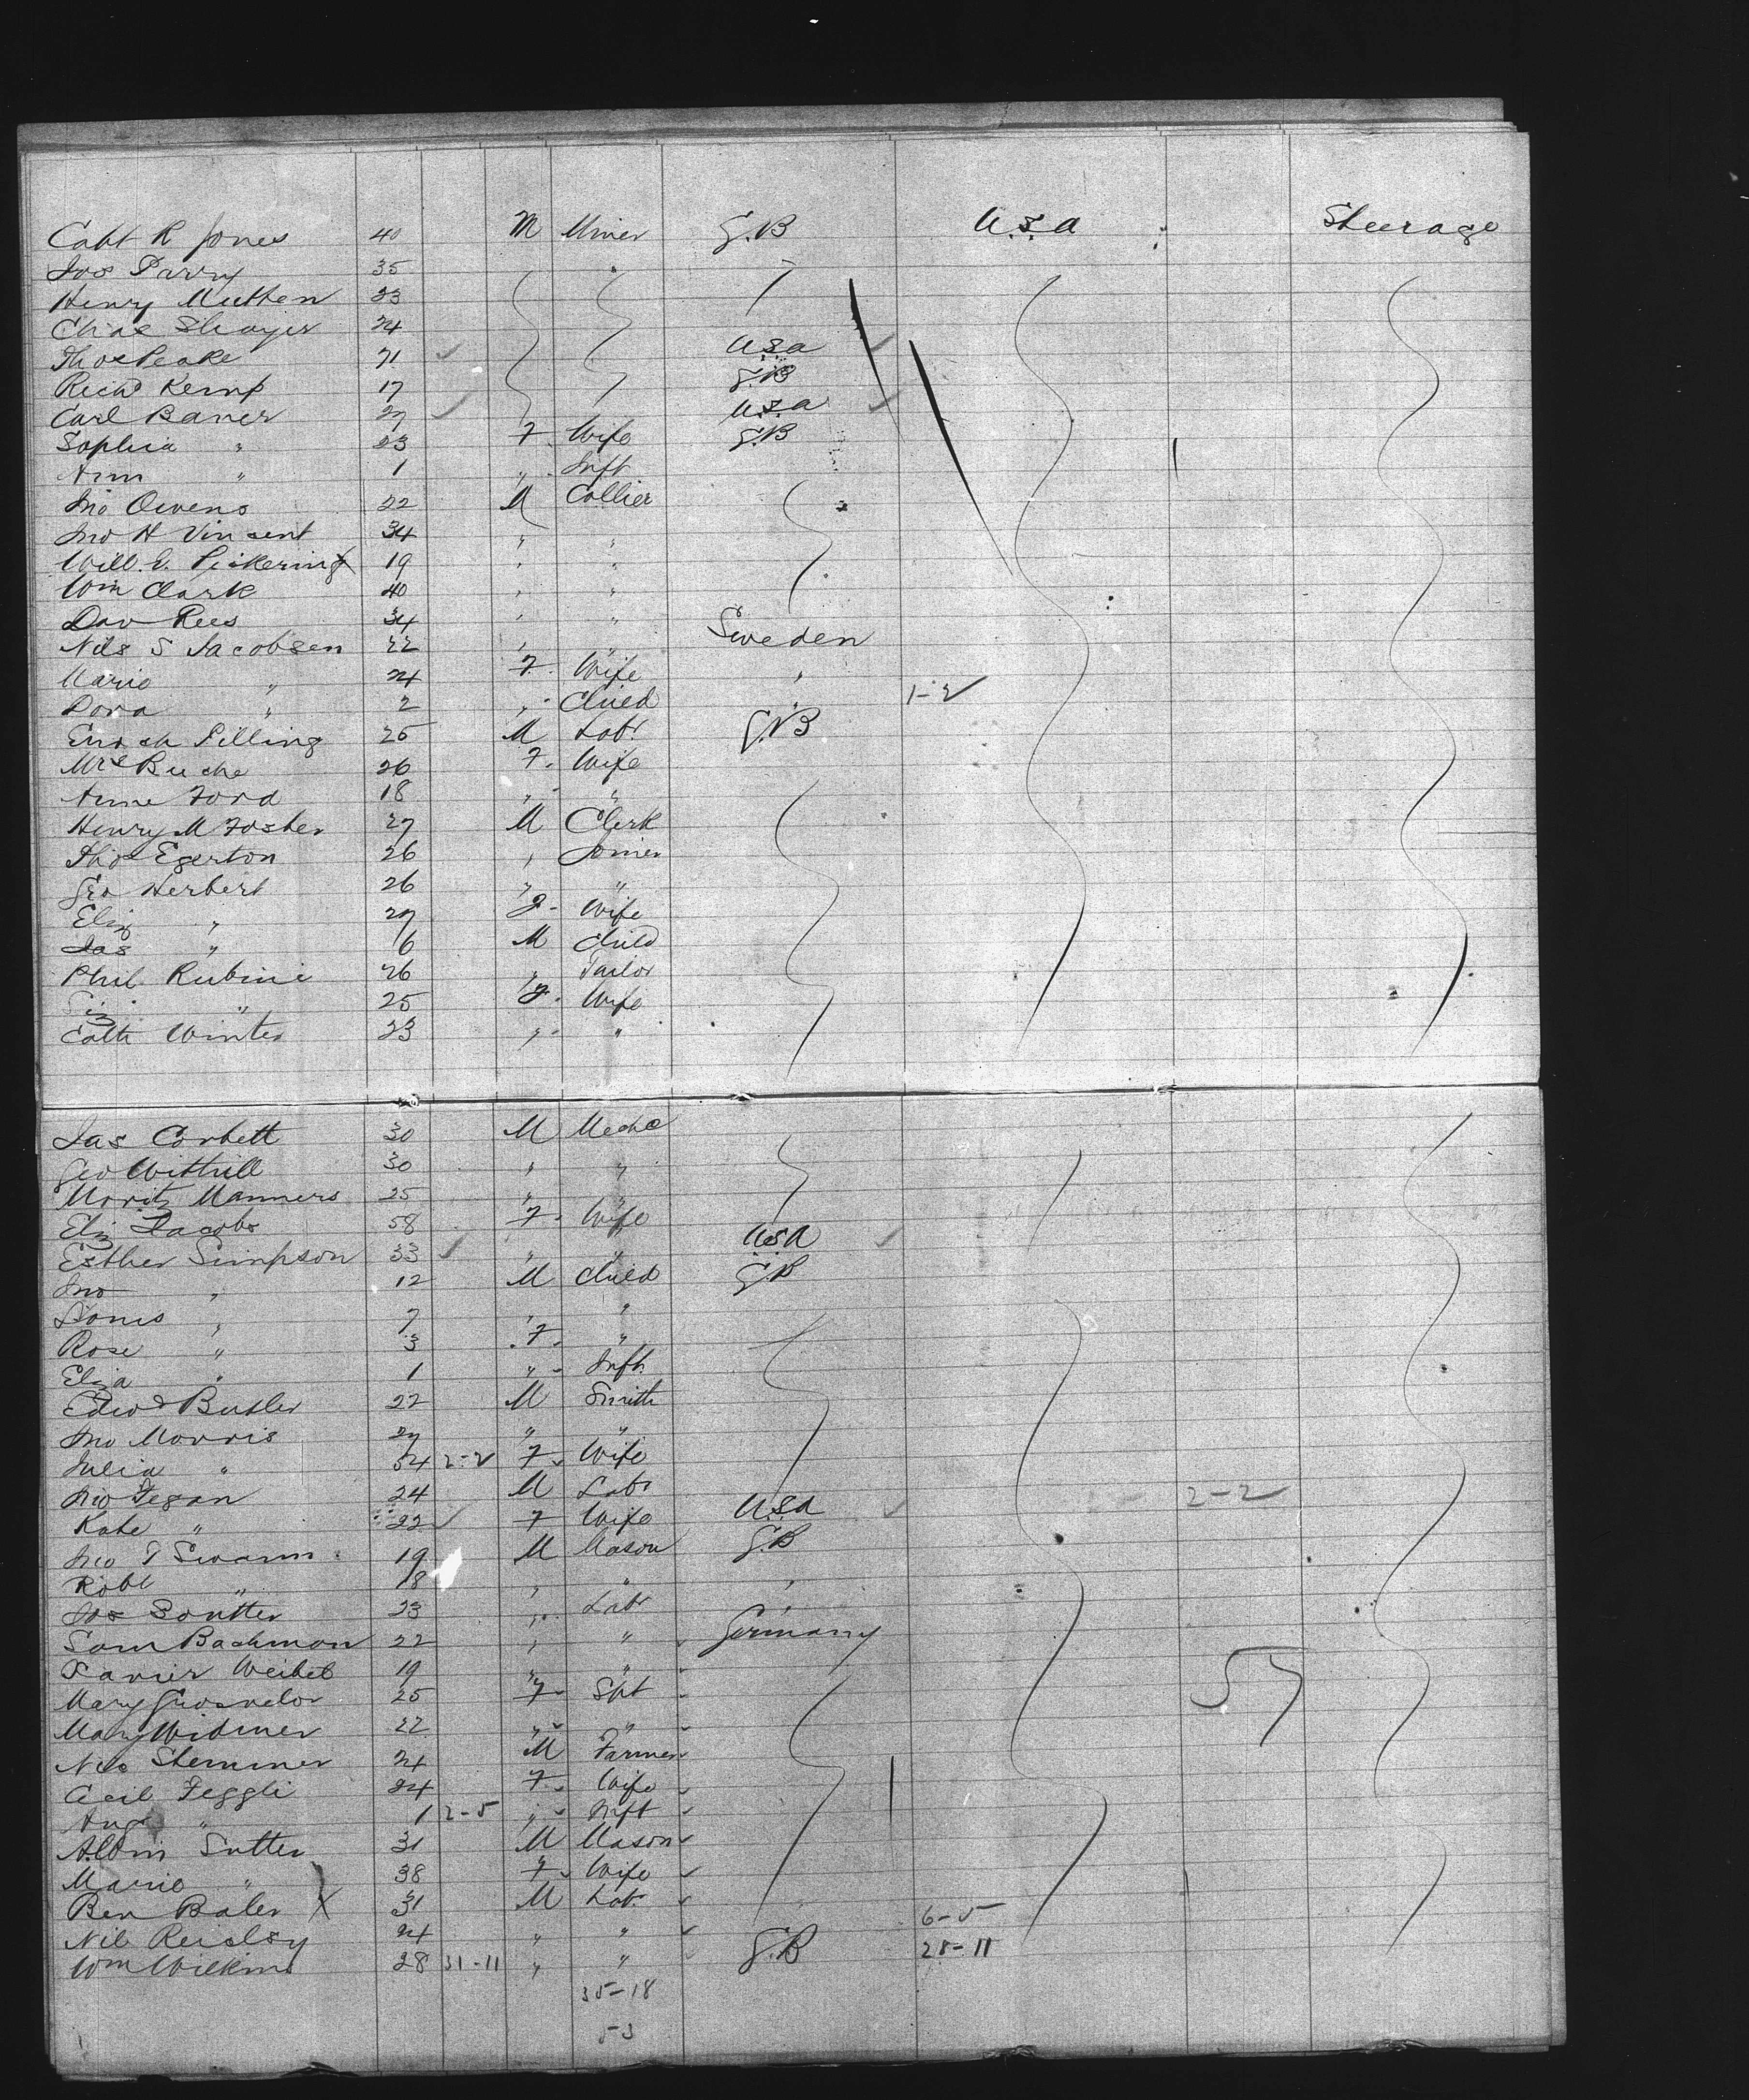 Cabt R Jones 40 M Miner G.B U.S.A Steerage
Jos Parry 35 "
Henry Mutten 23
Chas 24
Thos Peake 71 U.S.A
Richd Kemp 17 G.B
Carl Baner 27 U.S.A
Sophia " 23 F Wife G.B
Ann " 1 " Inft
Jno Owens 22 M Collier
Jno H Vincent 34 " "
Will. G. Pickering X 19 " "
Wm Clark 40 " "
Dav Rees 34 " "
Nils S Jacobsen 22 " " Sweden
Marie " 24 F Wife "
Dora " 2 " Child " 1-2
Enoch Pilling 25 M Labr G.B
Mrs Buche 26 F Wife
Anne Ford 18 " "
Henry M Foster 27 M Clerk
Thos Egerton 26 " Joiner
Geo Herbert 26 " "
Eliz " 27 F Wife
Jas " 6 M Child
Phil Rubini 26 " Tailor
" 25 F Wife
Cath Winter 23 " "
Jas Corbett 30 M Mechc
Geo Withill 30 " "
Moritz Manners 25 " "
Eliz Jacobs 58 F Wife
Esther Simpson 33 " " U.S.A
Jno " 12 M Child G.B
Louis " 7 " "
Rose " 3 F "
Eliza " 1 " Inft
Edwd Butler 22 M Smith
Jno Morris 27 " "
Julia " 54 2-2 F Wife
Jno Fegan 24 M Labr 2-2
Kate " 22 F Wife U.S.A
Jno T Swann 19 M Mason G.B
Robt " 18 " " "
Jos Soutter 23 " Labr "
Sam Bachmon 22 " " Germany
Xavier Weibel 19 " "
Mary 25 F Spt 57
Mary Widmer 22 " "
Nic Stemmer 24 M Farmer
Cecil Feggli 24 F Wife
Aug " 1 2-5 " Inft
Albin Sutter 31 M Mason
Marie " 38 F Wife
Ben Baler X 31 M Labr
Nil Reidsy 24 " " 6-5
Wm Wilkins 28 31-11 " " G.B 28-11
35-18
53